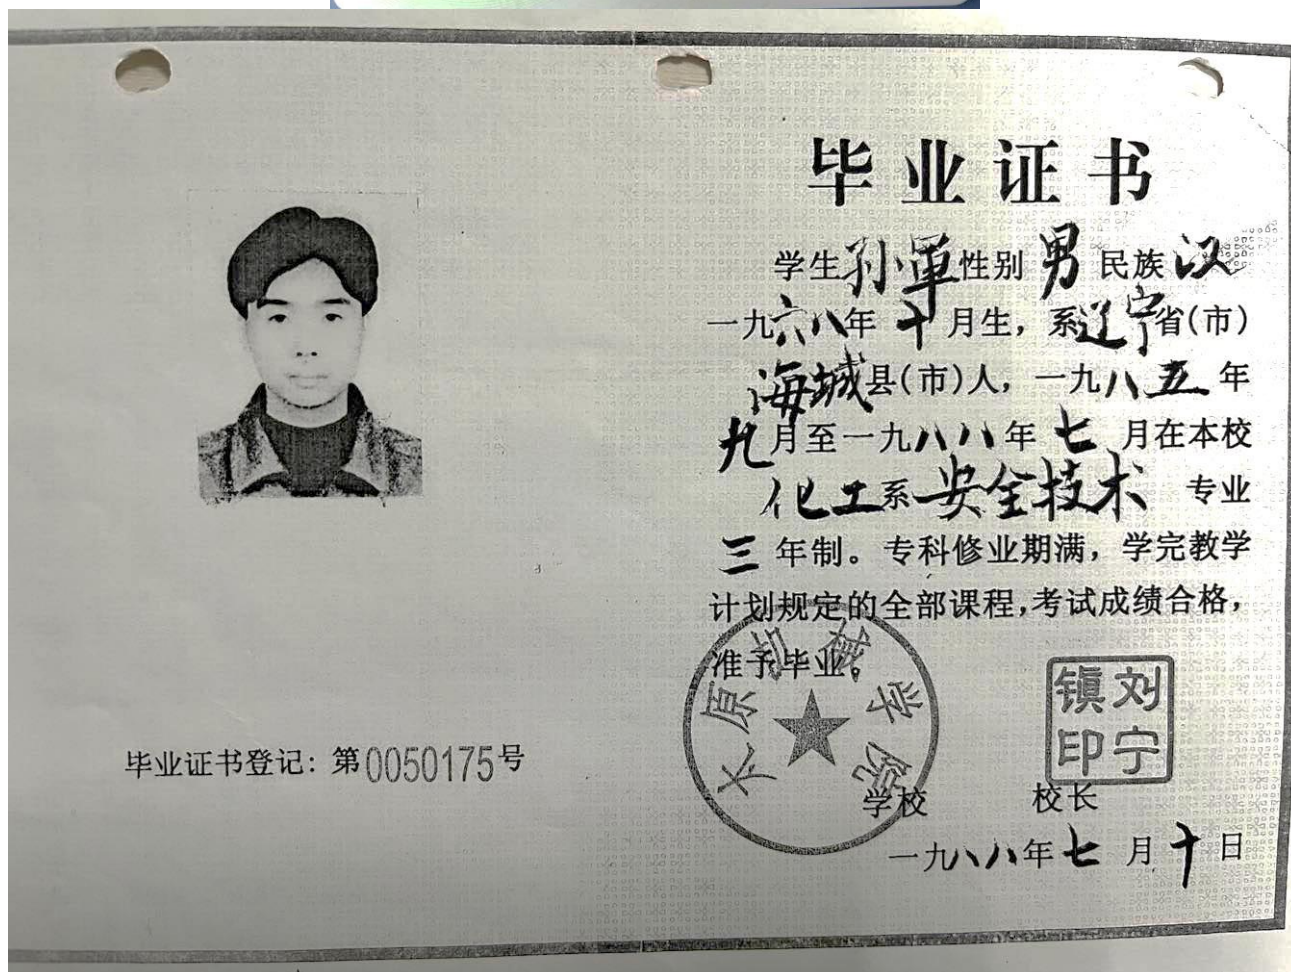 毕业证书
学生孙军性别男民族汉
一九六八年十月生，系辽宁省(市)
海城县(市)人，一九八五年
九月至一九八八年七月在本校
化工系安全技术专业
三年制。专科修业期满，学完教学
计划规定的全部课程，考试成绩合格，
准予毕业。
太原 学院
刘宁
镇印
学校 校长
一九八八年七月十日
毕业证书登记：第0050175号